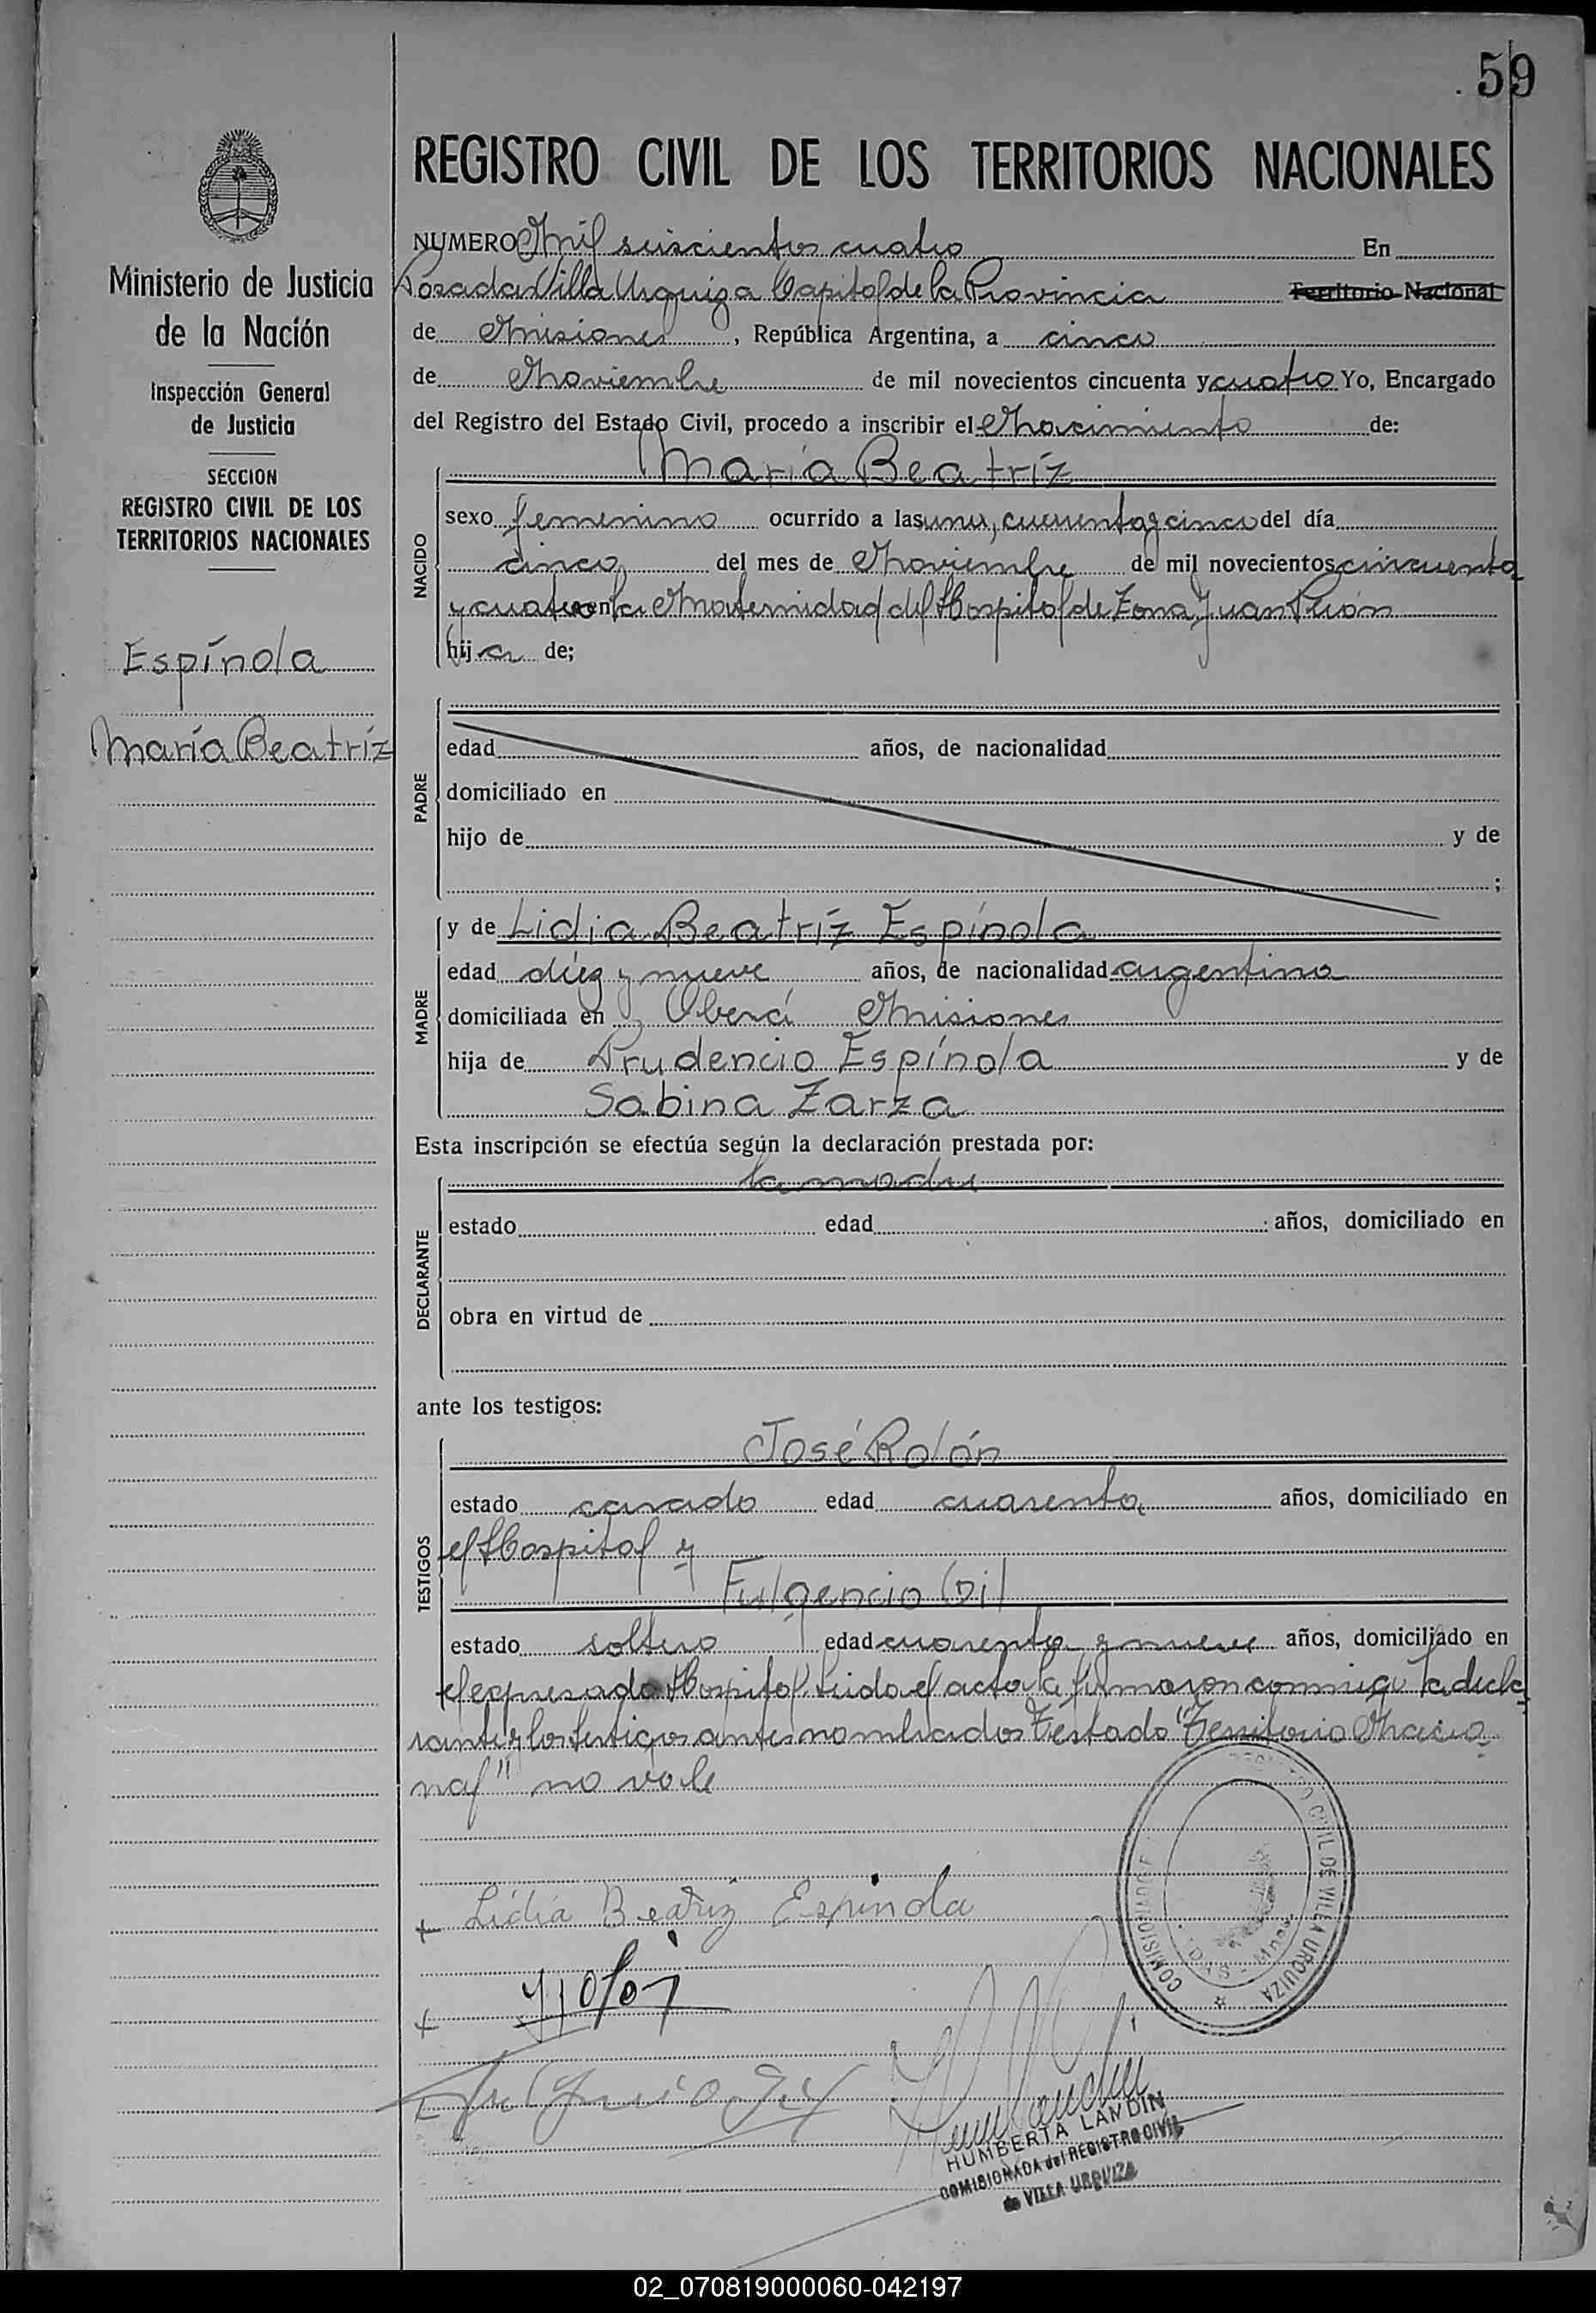 59
REGISTRO CIVIL DE LOS TERRITORIOS NACIONALES
Ministerio de Justicia
de la Nación
Inspección General
de Justicia
SECCION
REGISTRO CIVIL DE LOS
TERRITORIOS NACIONALES
Espínola
María Beatríz
NUMERO Mil seiscientos cuatro En
Posadas Villa Urquiza Capital de la Provincia Territorio Nacional
de Misiones, República Argentina, a cinco
de Noviembre de mil novecientos cincuenta y cuatro Yo, Encargado
del Registro del Estado Civil, procedo a inscribir el Nacimiento de:
María Beatríz
NACIDO
sexo femenino ocurrido a las una, cuarenta y cinco del día
cinco del mes de Noviembre de mil novecientos cincuenta
y cuatro en la Maternidad del Hospital de Zona Juan Perón
hija de;
PADRE
edad años, de nacionalidad
domiciliado en
hijo de y de
;
MADRE
y de Lidia Beatríz Espínola
edad diez y nueve años, de nacionalidad argentina
domiciliada en Oberá Misiones
hija de Prudencio Espínola y de
Sabina Zarza
Esta inscripción se efectúa según la declaración prestada por:
la madre
DECLARANTE
estado edad años, domiciliado en
obra en virtud de
ante los testigos:
TESTIGOS
José Rolón
estado casado edad cuarenta años, domiciliado en
el Hospital y
Fulgencio Gil
estado soltero edad cuarenta y nueve años, domiciliado en
el expresado Hospital. Leida el acta la firmaron conmigo la decla
rante y los testigos antes nombrados Testado "Territorio Nacio
nal" no vale
Lidia Beatriz Espinola
REGISTRO CIVIL DE VILLA URQUIZA
COMISIONADO
Fulgencio Gil
HUMBERTA LANDIN
COMISIONADA del REGISTRO CIVIL
de VILLA URQUIZA
02_070819000060-042197